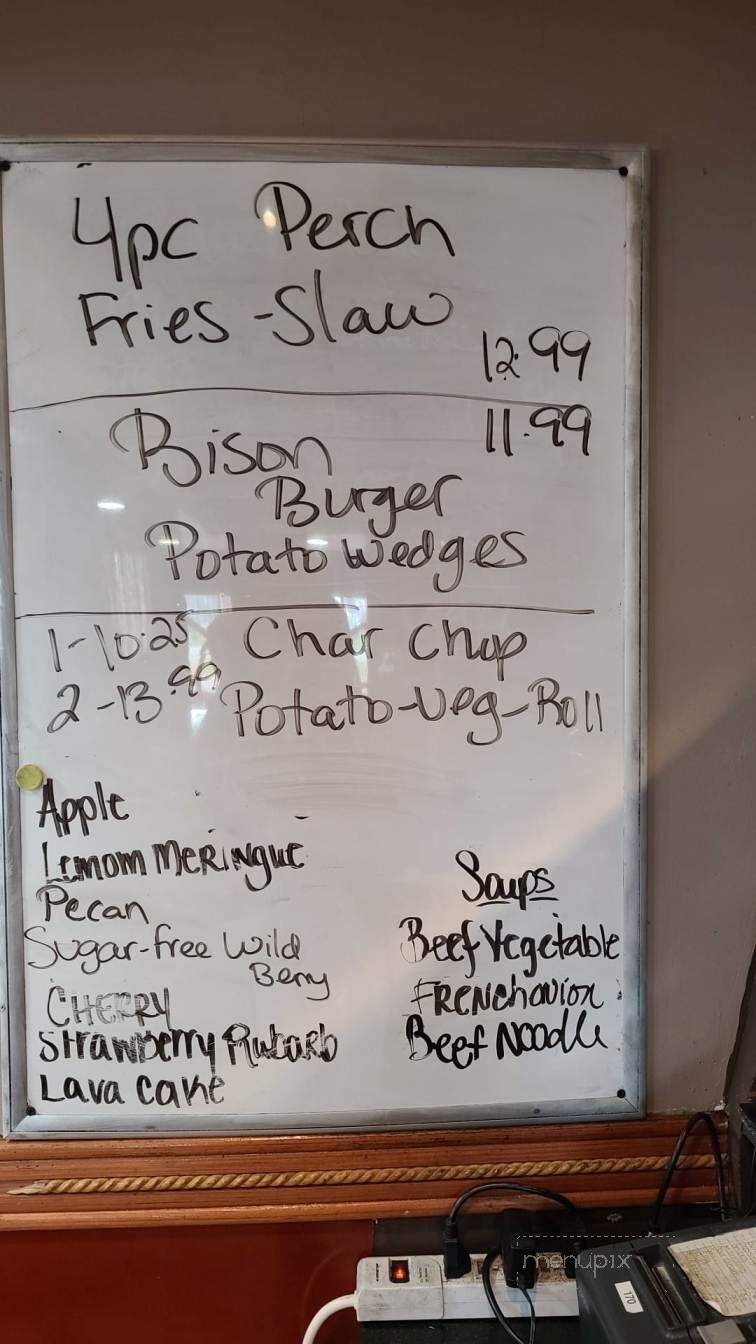 4pc Perch
Fries - Slaw
12.99
11.99
Bison
Burger
Potato Wedges
1-10.25 Char Chop
2-13.99 Potato-Veg-Roll
Apple
Lemom Meringue
Pecan
Sugar-free Wild
Berry
CHERRY
Strawberry Rubarb
Lava Cake
Soups
Beef Vegetable
FRENchonion
Beef Noodle
menupix
170